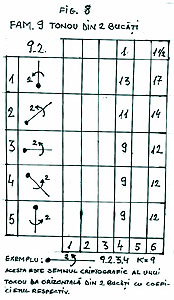 FIG. 8
FAM. 9 TONOU DIN 2 BUCĂȚI
9.2. 1 1½
1 2 13 17
2 2 11 14
3 2 9 12
4 2 9 12
5 2 9 12
1 2 3 4 5 6
EXEMPLU: 2 9.2.3.4 K=9
ACESTA ESTE SEMNUL CRIPTOGRAFIC AL UNUI
TONOU ORIZONTALĂ DIN 2 BUCĂȚI CU COEFI-
CIENTUL RESPECTIV.